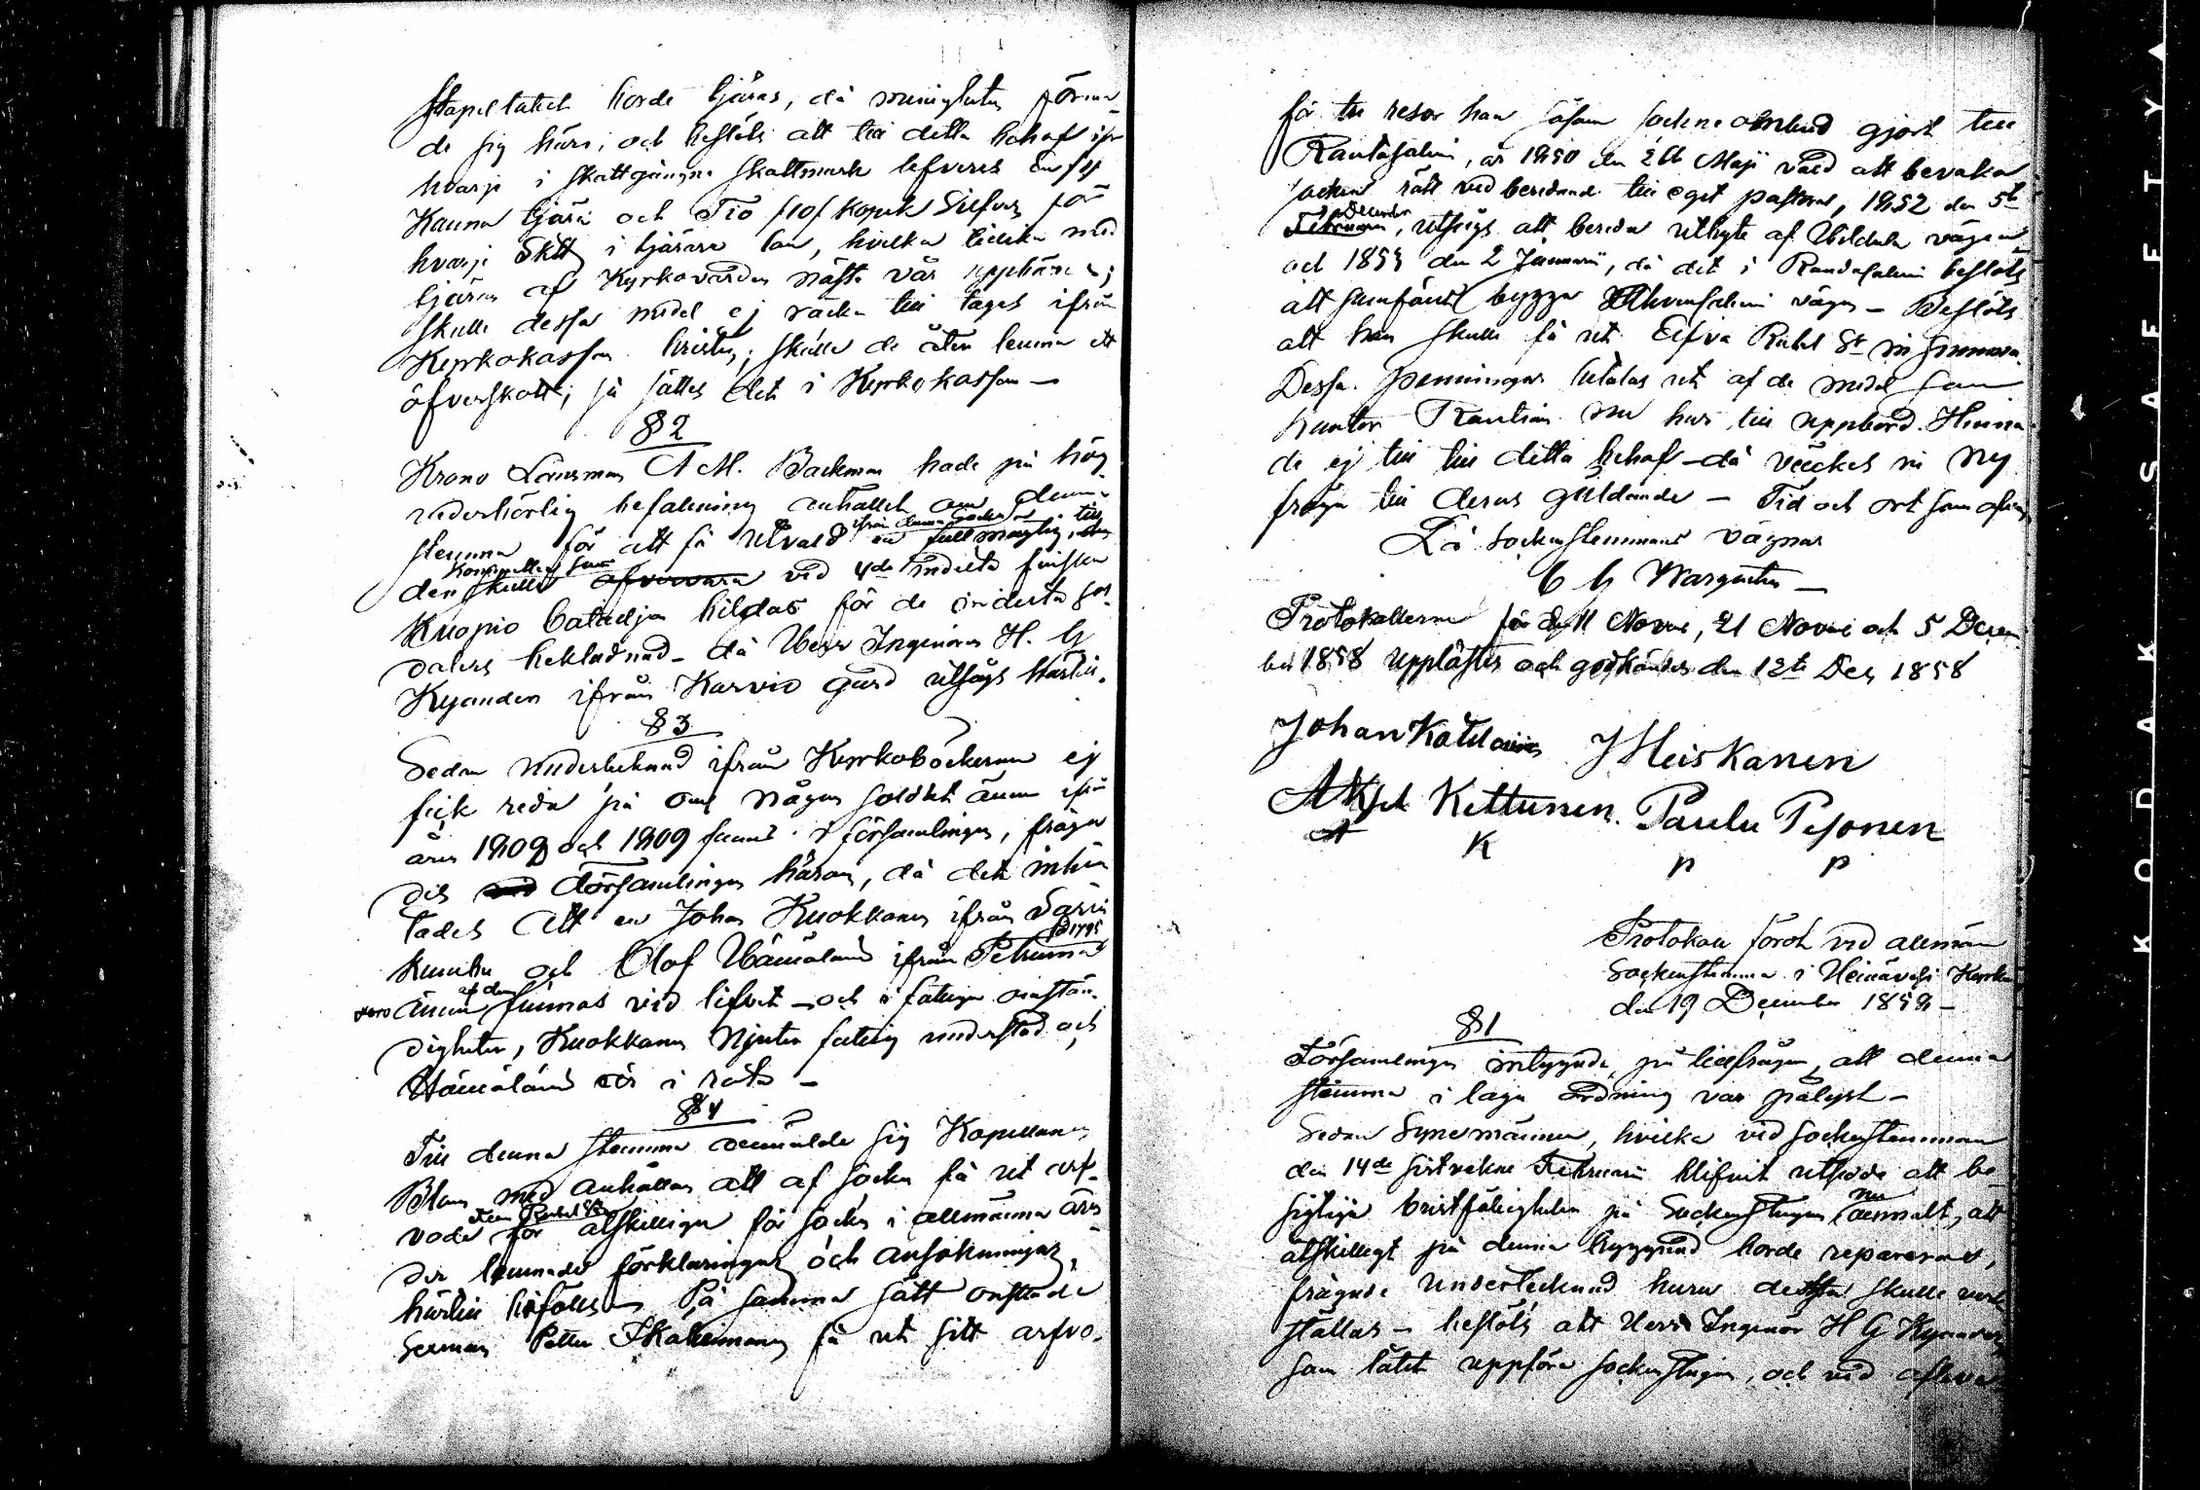 Kapeltaket borde tjäras, då menigheten förena
de sig häri, och beslöts att till detta behof ifr
hvarje i skattgången skattmark lefveres en ½
Kanna tjära och Tio /10/ kopek Silfver för
hvarje Skatt i tjärare lön, hvilka tillika med
tjäran af Kyrkovärden nästa vår uppbäres;
skulle dessa medel ej räcka till tages ifrån
Kyrkokassan bristen; skulle de åter lemna ett
öfverskott, så sättes det i Kyrkokassan —
§ 2
Krono Länsman A M. Backman hade på hög
vederbörlig befallning anhållit om denna
stemma för att få utvald ifrån denna Socken en fullmägtig, till
den Kommitten som skulle vid 4de indelta finska
Kuopio bataljon bildas för de indelta sol-
daters beklädnad — då Herr Ingeniören H. G
Kyander ifrån Karvio gård utsågs härtill.
§ 3
Sedan undertecknad ifrån Kyrkoböckerna ej
fick reda på om någon soldat ännu ifrån
åren 1808 och 1809 fanns i församlingen, fråga
des församlingen härom, då det inhem
tades att en Johan Kuokkanen ifrån Sarin
kumbu och Olof Hämäläinen ifrån Petruma fd 1795
ännu af dem finnas vid lifvet — och i fattiga omstän-
digheter, Kuokkanen njuter fattig understöd och
Hämäläinen är i rote —
§ 4
Till denna stemma anmälde sig Kapellanen
Blom med anhållan att af socken få ut arf-
vode Fem Rubel Sr för åtskilliga för socken i allmänna ären
der lemnade förklaringar och ansökningar,
härtill bifölls — På samma sätt anställde
Sexman Petter Ikäheimonen få ut sitt arfvo-
för tre resor han såsom sockneombud gjort till
Rantasalmi, år 1850 den 26 Maji värd att bevaka
sockens rätt vid beredande till eget pastorat, 1852 den 5te
December, utsågs att bereda utbyte af vägen
och 1853 den 2 Januarii, då det i Randasalmi beslöts
att samfäldt bygga vägen — Beslöts
att han skulle få ut Elfva Rubel Sr
Dessa penningar betalas ut af de medel som
Kantor Rautiain nu har till uppbörd. Hinna
de ej till till detta behof — då väckes en ny
fråga till deras gäldande — Tid och ort som ofvan
På Sockenstemmans vägnar
C G Wargentin —
Protokollerne för den 11 Novbr, 21 Novbr och 5 Decem
ber 1858 upplästes och godkändes den 12te Dec 1858
Johan Kotilainen J Heiskanen
Axel Kettunen. Paulu Pesonen
A K P P
Protokoll fördt vid allmän
Sockenstemma i Heinävesi Kyrka
den 19 December 1858 —
§ 1
Församlingen intygade, på tillfrågan, att denna
stemma i laga ordning var pålyst —
Sedan Synemännen, hvilka vid sockenstemman
den 14de sistvekne Februarii blifvit utsedde att be-
sigtiga bristfälligheten på Sockenstugan nu anmält, att
åtskilligt på denna byggnad borde repareras,
frågade Undertecknad huru detta skulle verk
ställas — beslöts att Herr Ingeniör H G Kyander
som låtit uppföra sockenstugan, och vid aflem